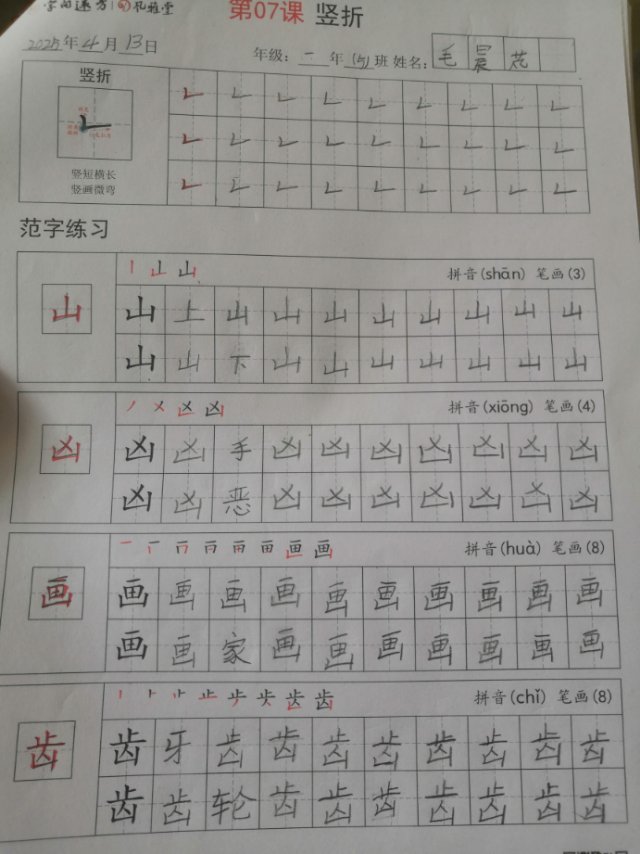 第07课 竖折
2025年4月13日
年级：一年 班 姓名：毛晨茂
竖折
竖短横长
竖画微弯
范字练习
山 拼音(shān) 笔画(3)
山
山上山山山山山山山山
山山下山山山山山山山
凶 拼音(xiōng) 笔画(4)
凶
凶凶手凶凶凶凶凶凶凶
凶凶恶凶凶凶凶凶凶凶
画 拼音(huà) 笔画(8)
画
画画画画画画画画画画
画画家画画画画画画画
齿 拼音(chǐ) 笔画(8)
齿
齿牙齿齿齿齿齿齿齿齿
齿齿轮齿齿齿齿齿齿齿